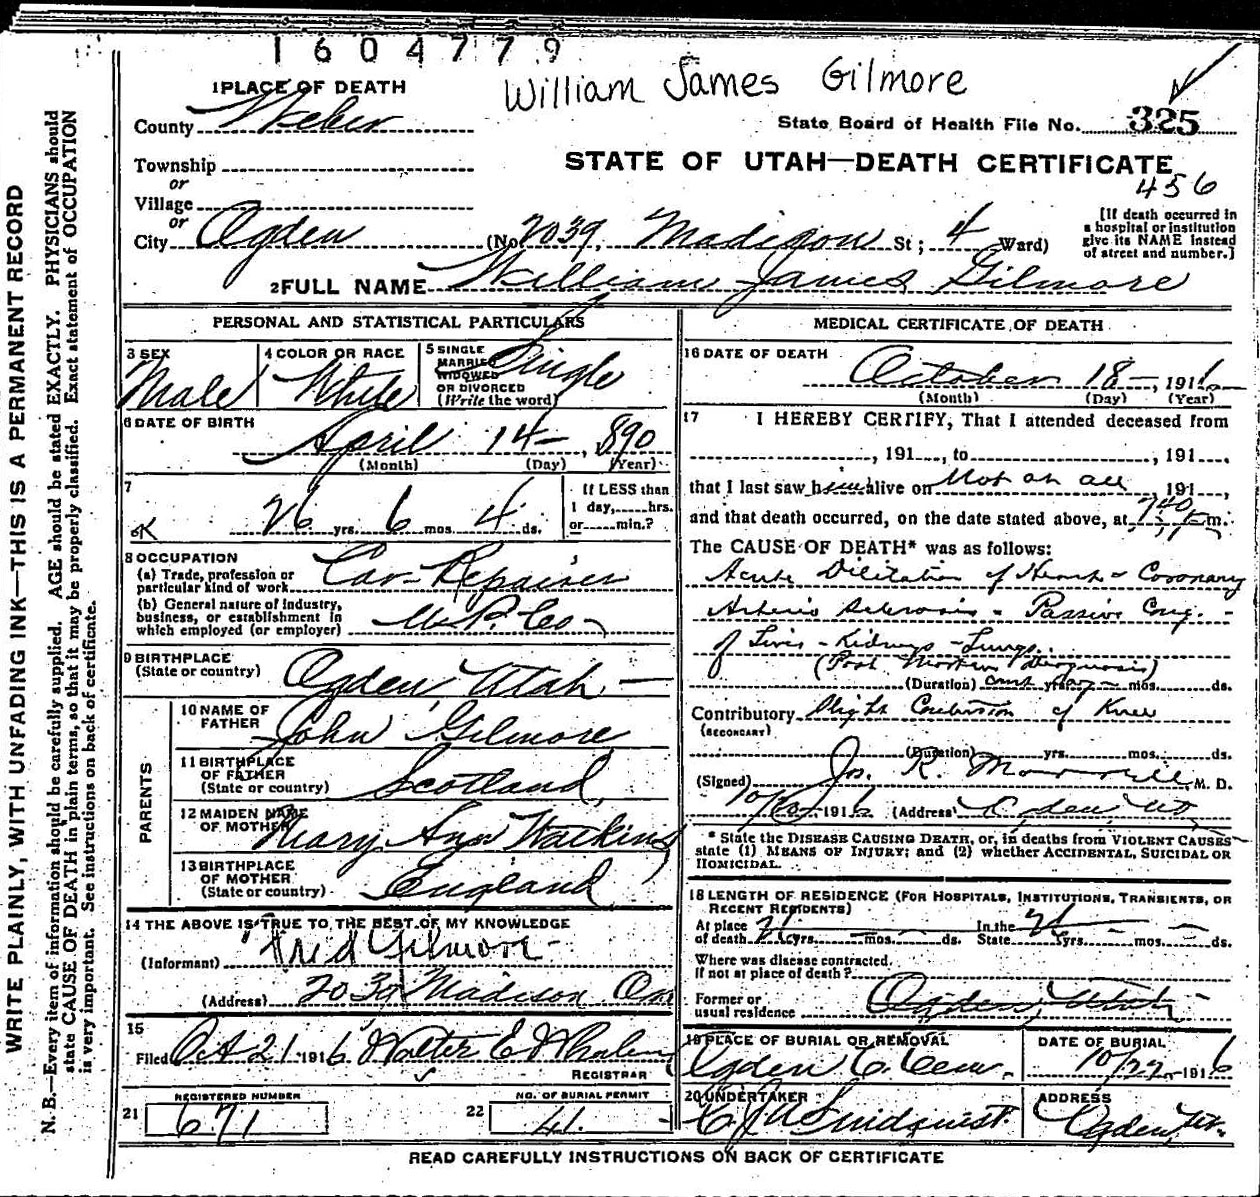 1604779
William James Gilmore
1 PLACE OF DEATH
County Weber
State Board of Health File No. 325
Township
STATE OF UTAH—DEATH CERTIFICATE
456
or
Village
or
City Ogden (No. 2039, Madison St; 4 Ward)
[If death occurred in
a hospital or institution
give its NAME instead
of street and number.]
2 FULL NAME William James Gilmore
PERSONAL AND STATISTICAL PARTICULARS
3 SEX
Male
4 COLOR OR RACE
White
5 SINGLE
MARRIED
WIDOWED
OR DIVORCED
(Write the word)
Single
6 DATE OF BIRTH
April 14—, 1890
(Month) (Day) (Year)
7
26 yrs. 6 mos. 4 ds.
If LESS than
1 day,......hrs.
or......min.?
8 OCCUPATION
(a) Trade, profession or
particular kind of work Car-Repairer
(b) General nature of industry,
business, or establishment in
which employed (or employer)
9 BIRTHPLACE
(State or country) Ogden Utah —
PARENTS
10 NAME OF
FATHER John Gilmore
11 BIRTHPLACE
OF FATHER
(State or country) Scotland,
12 MAIDEN NAME
OF MOTHER Mary Ann Watkins
13 BIRTHPLACE
OF MOTHER
(State or country) England
14 THE ABOVE IS TRUE TO THE BEST OF MY KNOWLEDGE
(Informant) Fred Gilmore
(Address) 2039 Madison
15
Filed Oct 21 1916 Walter E Whalen
REGISTRAR
REGISTERED NUMBER
21 671
NO. OF BURIAL PERMIT
22 41.
MEDICAL CERTIFICATE OF DEATH
16 DATE OF DEATH
October 18—, 1916
(Month) (Day) (Year)
17 I HEREBY CERTIFY, That I attended deceased from
, 191...., to , 191....
that I last saw him alive on Not at all 191....,
and that death occurred, on the date stated above, at 7:40 P.m.
The CAUSE OF DEATH* was as follows:
Acute Dilitation of Heart - Coronary
Arterio Sclerosis - Passive Cong. -
of Liver - Kidneys - Lungs.
(Post Mortem Diagnosis)
(Duration) yrs. mos. ds.
Contributory Slight Contusion of Knee
(SECONDARY)
(Duration) yrs. mos. ds.
(Signed) Jos. R. Morrell M. D.
10/20, 1916 (Address) Ogden, Ut.
* State the DISEASE CAUSING DEATH, or, in deaths from VIOLENT CAUSES
state (1) MEANS OF INJURY; and (2) whether ACCIDENTAL, SUICIDAL OR
HOMICIDAL.
18 LENGTH OF RESIDENCE (FOR HOSPITALS, INSTITUTIONS, TRANSIENTS, OR
RECENT RESIDENTS)
At place
of death 26 yrs. — mos. ds.
In the
State 26 yrs. — mos. — ds.
Where was disease contracted.
If not at place of death?
Former or
usual residence Ogden, Utah
19 PLACE OF BURIAL OR REMOVAL
Ogden C. Cem.
DATE OF BURIAL
10/22 1916
20 UNDERTAKER
Lindquist.
ADDRESS
Ogden, Ut.
READ CAREFULLY INSTRUCTIONS ON BACK OF CERTIFICATE
WRITE PLAINLY, WITH UNFADING INK—THIS IS A PERMANENT RECORD
N. B.—Every item of information should be carefully supplied. AGE should be stated EXACTLY. PHYSICIANS should
state CAUSE OF DEATH in plain terms, so that it may be properly classified. Exact statement of OCCUPATION
is very important. See instructions on back of certificate.